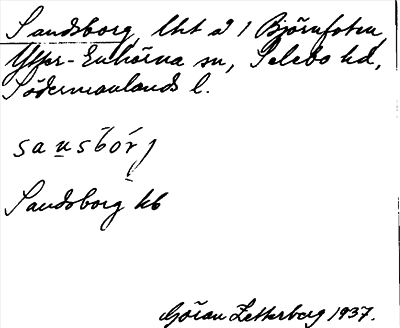 Sandsborg, lht å 1 Björnfoten,
Ytter-Enhörna sn, Selebo hd,
Södermanlands l.
sansbórj
Sandsborg kb
Göran Zetterberg 1937.